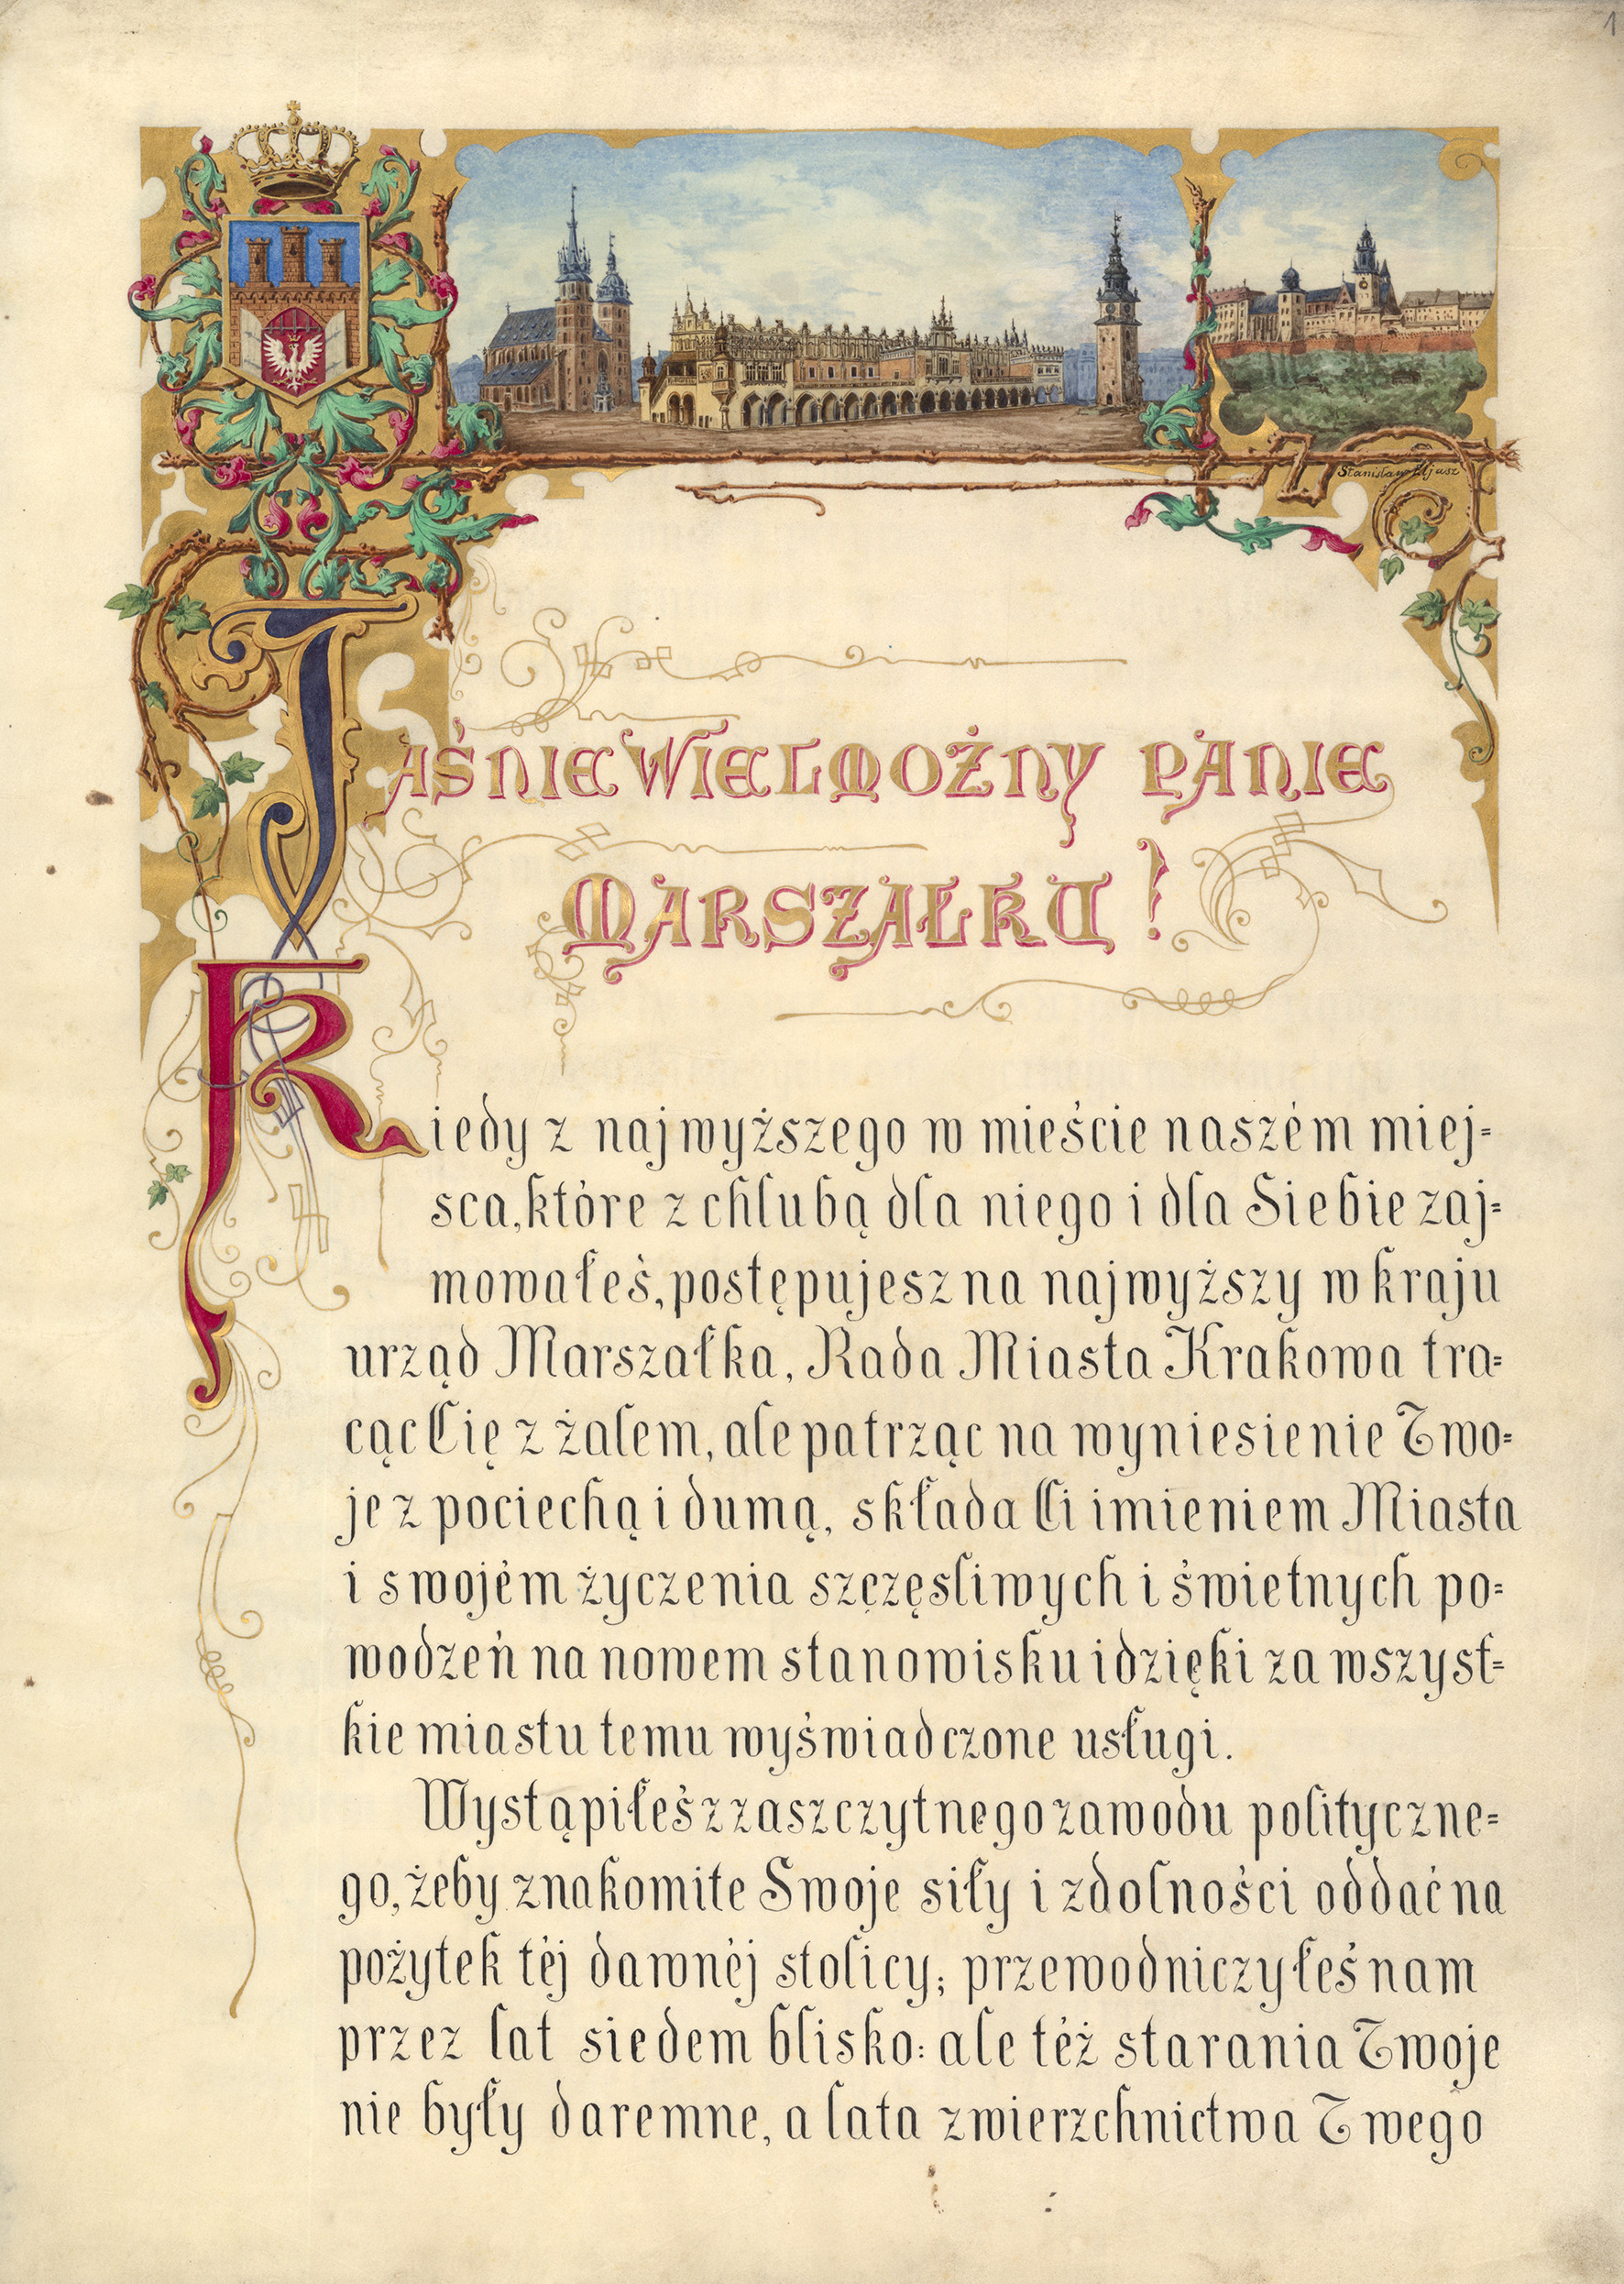 1
Stanisław Tljasz
JAŚNIE WIELMOŻNY PANIE
MARSZAŁKU!
Kiedy z najwyższego w mieście naszém miej=
sca, które z chlubą dla niego i dla Siebie zaj=
mowałeś, postępujesz na najwyższy w kraju
urząd Marszałka, Rada Miasta Krakowa tra=
cąc Cię z żalem, ale patrząc na wyniesienie Two=
je z pociechą i dumą, składa Ci imieniem Miasta
i swojém życzenia szczęsliwych i świetnych po=
wodzeń na nowem stanowisku i dzięki za wszyst=
kie miastu temu wyświadczone usługi.
Wystąpiłeś z zaszczytnego zawodu polityczne=
go, żeby znakomite Swoje siły i zdolności oddać na
pożytek téj dawnéj stolicy; przewodniczyłeś nam
przez lat siedem blisko: ale téż starania Twoje
nie były daremne, a lata zwierzchnictwa Twego